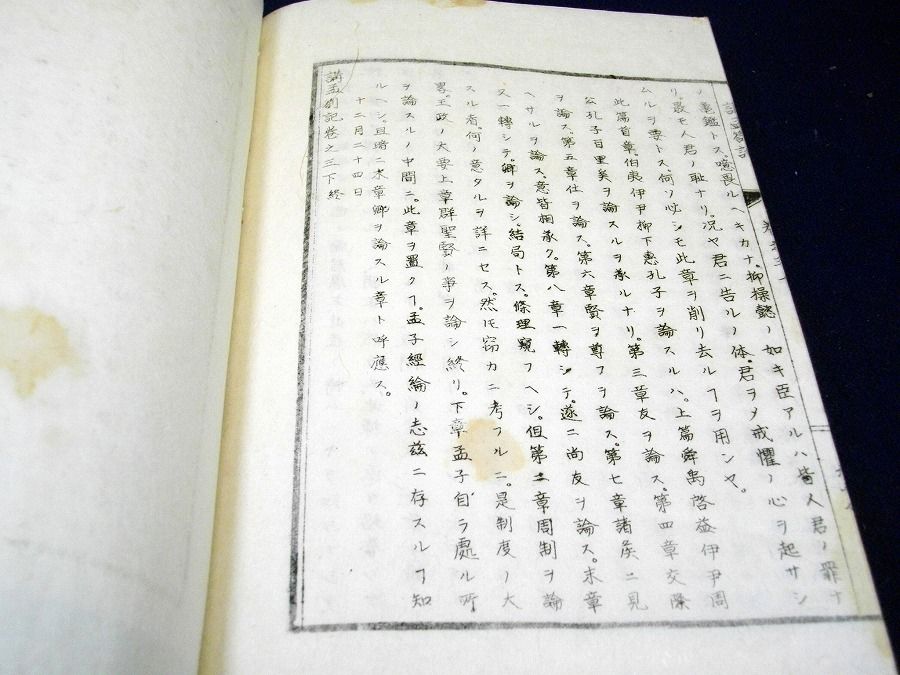 ノ亀鑑トス、噫畏ルヘキカナ、抑操懿ノ如キ臣アルハ皆人君ノ罪ナ
リ、最モ人君ノ耻ナリ、况ヤ君ニ告ルノ体、君ヲメ戒懼ノ心ヲ起サシ
ムルヲ要トス、何ソ必シモ此章ヲ削リ去ルヿヲ用ンヤ。
此篇首章、伯夷伊尹柳下惠孔子ヲ論スルハ、上篇舜禹啓益伊尹周
公孔子百里奚ヲ論スルヲ承ルナリ、第三章友ヲ論ス、第四章交際
ヲ論ス、第五章仕ヲ論ス、第六章賢ヲ尊フヲ論ス、第七章諸侯ニ見
ヘサルヲ論ス、意皆相承ク、第八章一轉シテ、遂ニ尚友ヲ論ス、末章
又一轉シテ、卿ヲ論シ、結局トス、條理窺フヘシ、但第二章周制ヲ論
スル者、何ノ意タルヲ詳ニセス、然𪜈窃カニ考フルニ、是制度ノ大
畧、王政ノ大要、上章群聖賢ノ事ヲ論シ終リ、下章孟子自ラ處ル所
ヲ論スルノ中間ニ、此章ヲ置クヿ、孟子經綸ノ志茲ニ存スルヿ知
ルヘシ、且暗ニ末章卿ヲ論スル章ト呼應ス。
十二月二十四日
講孟劄記卷之三下終